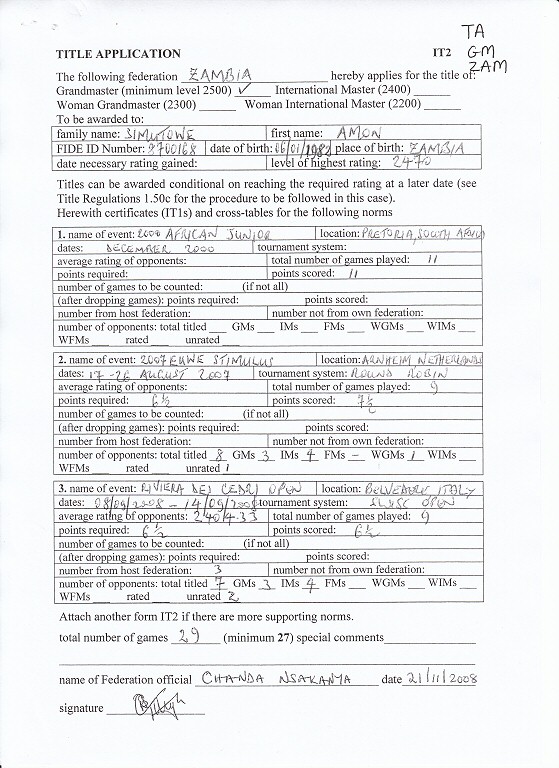 TA
TITLE APPLICATION IT2 GM
ZAM
The following federation ZAMBIA hereby applies for the title of:
Grandmaster (minimum level 2500) ✓ International Master (2400)
Woman Grandmaster (2300) Woman International Master (2200)
To be awarded to:
family name: SIMUTOWE first name: AMON
FIDE ID Number: 8700168 date of birth: 06/01/1982 place of birth: ZAMBIA
date necessary rating gained: level of highest rating: 2470
Titles can be awarded conditional on reaching the required rating at a later date (see
Title Regulations 1.50c for the procedure to be followed in this case).
Herewith certificates (IT1s) and cross-tables for the following norms
1. name of event: 2000 AFRICAN JUNIOR location: PRETORIA, SOUTH AFRICA
dates: DECEMBER 2000 tournament system:
average rating of opponents: total number of games played: 11
points required: points scored: 11
number of games to be counted: (if not all)
(after dropping games): points required: points scored:
number from host federation: number not from own federation:
number of opponents: total titled GMs IMs FMs WGMs WIMs
WFMs rated unrated
2. name of event: 2007 EUWE STIMULUS location: ARNHEIM, NETHERLANDS
dates: 17-26 AUGUST 2007 tournament system: ROUND ROBIN
average rating of opponents: total number of games played: 9
points required: 6½ points scored: 7½
number of games to be counted: (if not all)
(after dropping games): points required: points scored:
number from host federation: number not from own federation:
number of opponents: total titled 8 GMs 3 IMs 4 FMs - WGMs 1 WIMs
WFMs rated unrated 1
3. name of event: RIVIERA DEI CEDRI OPEN location: BELVEDERE ITALY
dates: 08/09/2008 - 14/09/2008 tournament system: SWISS OPEN
average rating of opponents: 2404.33 total number of games played: 9
points required: 6½ points scored: 6½
number of games to be counted: (if not all)
(after dropping games): points required: points scored:
number from host federation: 3 number not from own federation:
number of opponents: total titled 7 GMs 3 IMs 4 FMs WGMs WIMs
WFMs rated unrated 2
Attach another form IT2 if there are more supporting norms.
total number of games 29 (minimum 27) special comments
name of Federation official CHANDA NSAKANYA date 21/11/2008
signature